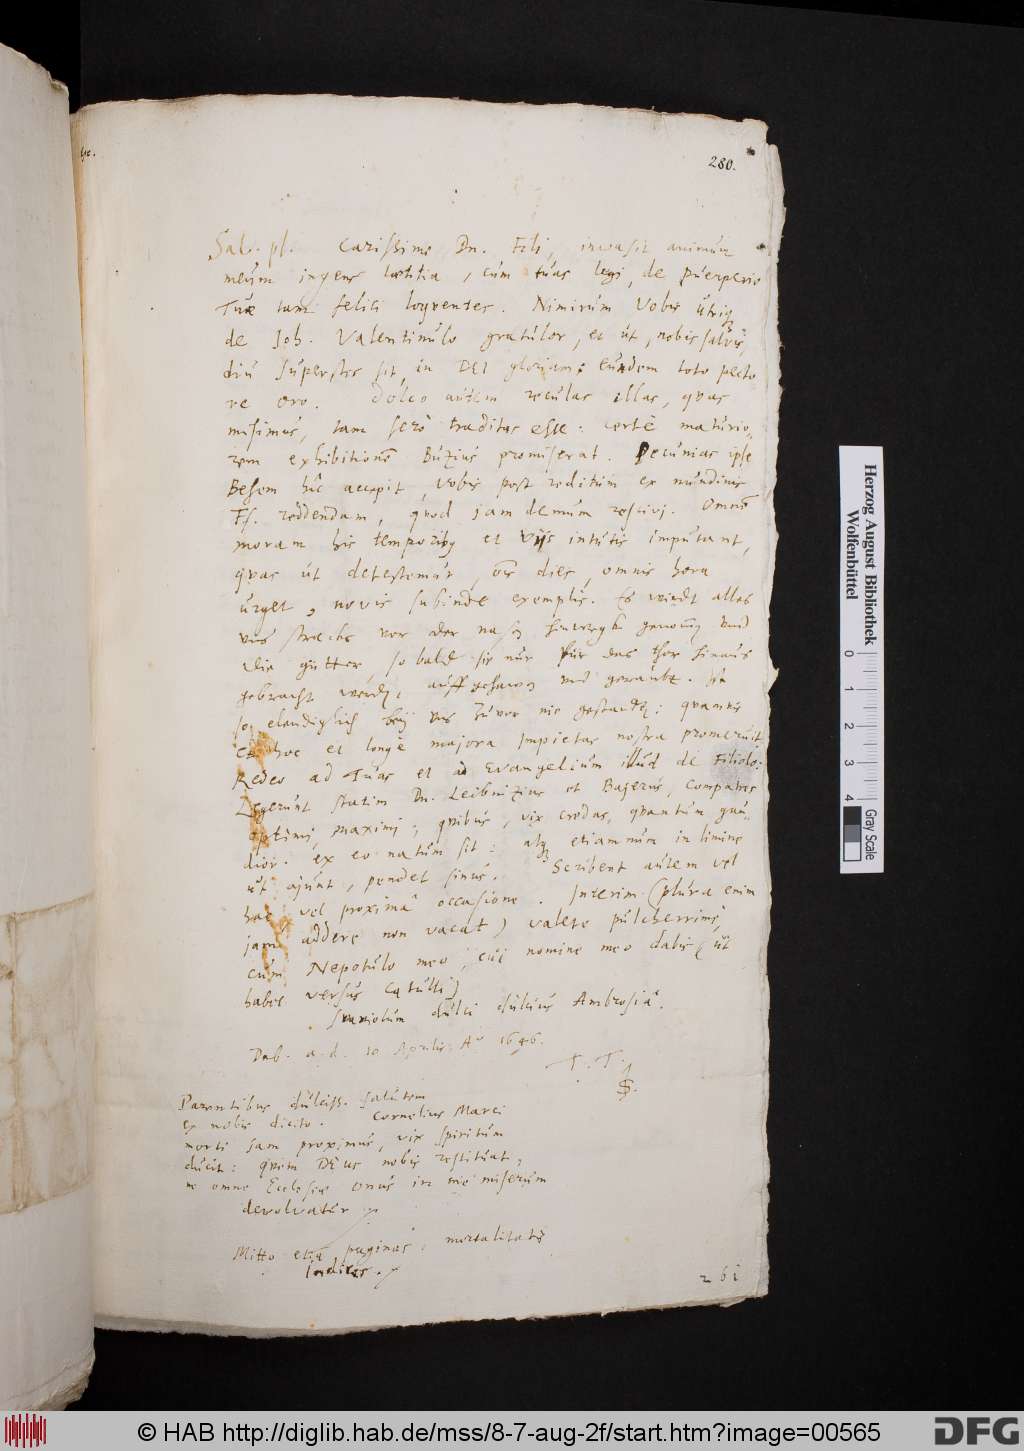 280.
Sal. pl. Carissime Dn. Fili, invasit animum
meum ingens lætitia, cum tuas legi, de puerperio
Tuæ tam felici loquentes. Nimirum Vobis utriq
de Joh. Valentinulo gratulor, et ut, nobis salvis,
diu superstes sit, in DEI gloriam; eundem toto pecto-
re oro. Doleo autem reculas illas, quas
misimus, tam serò traditas esse: certè maturio-
rem exhibitionē Buzius promiserat. Pecunias ipse
Besem hîc accepit, vobis post reditum ex nundinis
Ff. reddendam, quod jam demum rescivj. Omnē
moram his temporibq et vijs intutis imputant,
quas ut detestemur, oīs dies, omnis hora
urget, novis subinde exemplis. Es wirdt alles
vns vor der nasen genom̄en vnd
die gütter, so bald sie nur für das thor hinaus
gebracht werdē, auffgehawen vnd geraubt.
so elendiglich beÿ vns zuvor nie gestandē: quamvis
et hoc et longè majora impietas nostra promeruit.
Redeo ad Tuas et ad Evangelium illud de Filiolo:
Legerunt statim Dn. Leibnizius et Bajerus, Compatres
optimj, maximj; quibus, vix credas, quantum gau-
dior. ex eo natum sit: atq etiamnum in limine
ut ajunt, pendet sinus. Scribent autem vel
hac vel proximâ occasione. Interim (plura enim
jam addere non vacat) valete pulcherrimè,
cum Nepotulo meo, cui nomine meo dabis (ut
habet versus Catulli)
Suaviolum dulci dulcius Ambrosiâ.
Dab. a. d. 10 Aprilis Aº 1646.
T. T.
S.
Parentibus dulciss. salutem
ex nobis dicito. Cornelius Marci
morti jam proximus, vix spiritum
ducit: quem DEus nobis restituat,
ne omne Ecclesiæ onus in me miserum
devolvatur
Mitto etiā paginas, mortalitatis
indices.
261
Herzog August Bibliothek
Wolfenbüttel
0 1 2 3 4
Gray Scale
© HAB http://diglib.hab.de/mss/8-7-aug-2f/start.htm?image=00565
DFG